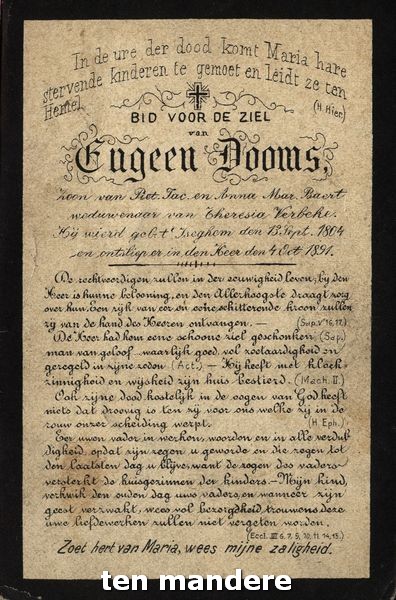 In de ure der dood komt Maria hare
stervende kinderen te gemoet en leidt ze ten
Hemel.
(H. Hier.)
BID VOOR DE ZIEL
van
Eugeen Dooms,
zoon van Pet. Jac. en Anna Mar. Baert
weduwenaar van Theresia Verbeke.
Hij wierd geb. t' Iseghem den 13 Sept. 1804
en ontsliep er in den Heer den 4 Oct. 1891.
De rechtveerdigen zullen in der eeuwigheid leven, bij den
Heer is hunne belooning, en den Allerhoogste draagt zorg
over hun. Een rijk van eer en eene schitterende kroon zullen
zij van de hand des Heeren ontvangen. — (Sap. V. 16, 17.)
De Heer had hem eene schoone ziel geschonken (Sap.)
man van geloof waarlijk goed, vol zedtaardigheid en
geregeld in zijne zeden (Act.) — Hij heeft met kloek-
zinnigheid en wijsheid zijn huis bestierd. (Mach. II.)
Ook zijne dood kostelijk in de oogen van God heeft
niets dat droevig is ten zij voor ons welke zij in de
rouw onzer scheiding werpt. (H. Eph.)
Eer uwen vader in werken, woorden en in alle verdul-
digheid, opdat zijn zegen u geworde en die zegen tot
den laatsten dag u blijve, want de zegen des vaders
versterkt de huisgezinnen der kinders. — Mijn kind,
verkwik den ouden dag uws vaders, en wanneer zijn
geest verzwakt, wees vol bezorgdheid, trouwens deze
uwe liefdewerken zullen niet vergeten worden.
(Eccl. III 6, 7, 9, 10, 11, 14, 15.)
Zoet hert van Maria, wees mijne zaligheid.
ten mandere